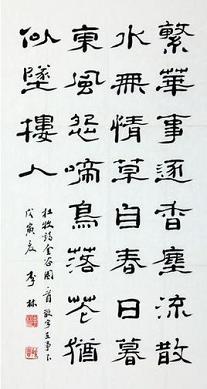 繁華事逐香塵流散
水無情草自春日暮
東風怨啼鳥落花猶
似墜樓人
杜牧詩金谷園一首
戊寅 李林